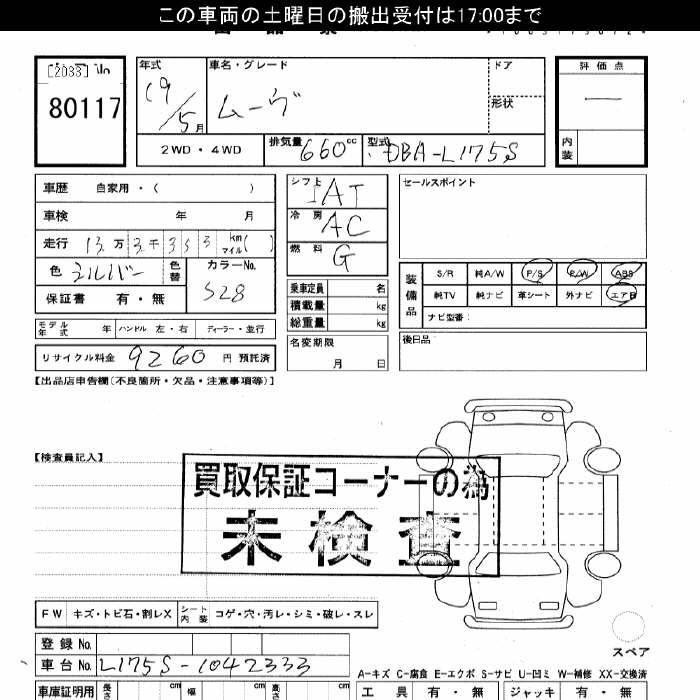 この車両の土曜日の搬出受付は17:00まで
80117
年式
19/5月
車名・グレード
ムーヴ
ドア
形状
評価点
内装
2WD・4WD
排気量 660 cc
型式 DBA-L175S
車歴 自家用・( )
車検 年 月
走行 13万3千353 km マイル( )
色 シルバー 色替
カラーNo. S28
保証書 有・無
シフト IAT
冷房 AC
燃料 G
乗車定員 名
積載量 kg
総重量 kg
セールスポイント
装備品
S/R 純A/W P/S P/W ABS
純TV 純ナビ 革シート 外ナビ エアB
ナビ型番:
モデル年式 年 ハンドル 左・右 ディーラー・並行
名変期限 月 日
後日品
リサイクル料金 9260 円 預託済
【出品店申告欄(不良箇所・欠品・注意事項等)】
【検査員記入】
買取保証コーナーの為
未検査
FW キズ・トビ石・割レX シート内装 コゲ・穴・汚レ・シミ・破レ・スレ
スペア
登録 No.
車台 No. L175S-1042333
A-キズ C-腐食 E-エクボ S-サビ U-凹ミ W-補修 XX-交換済
車庫証明用 長さ cm 幅 cm 高さ cm
工具 有・無 ジャッキ 有・無